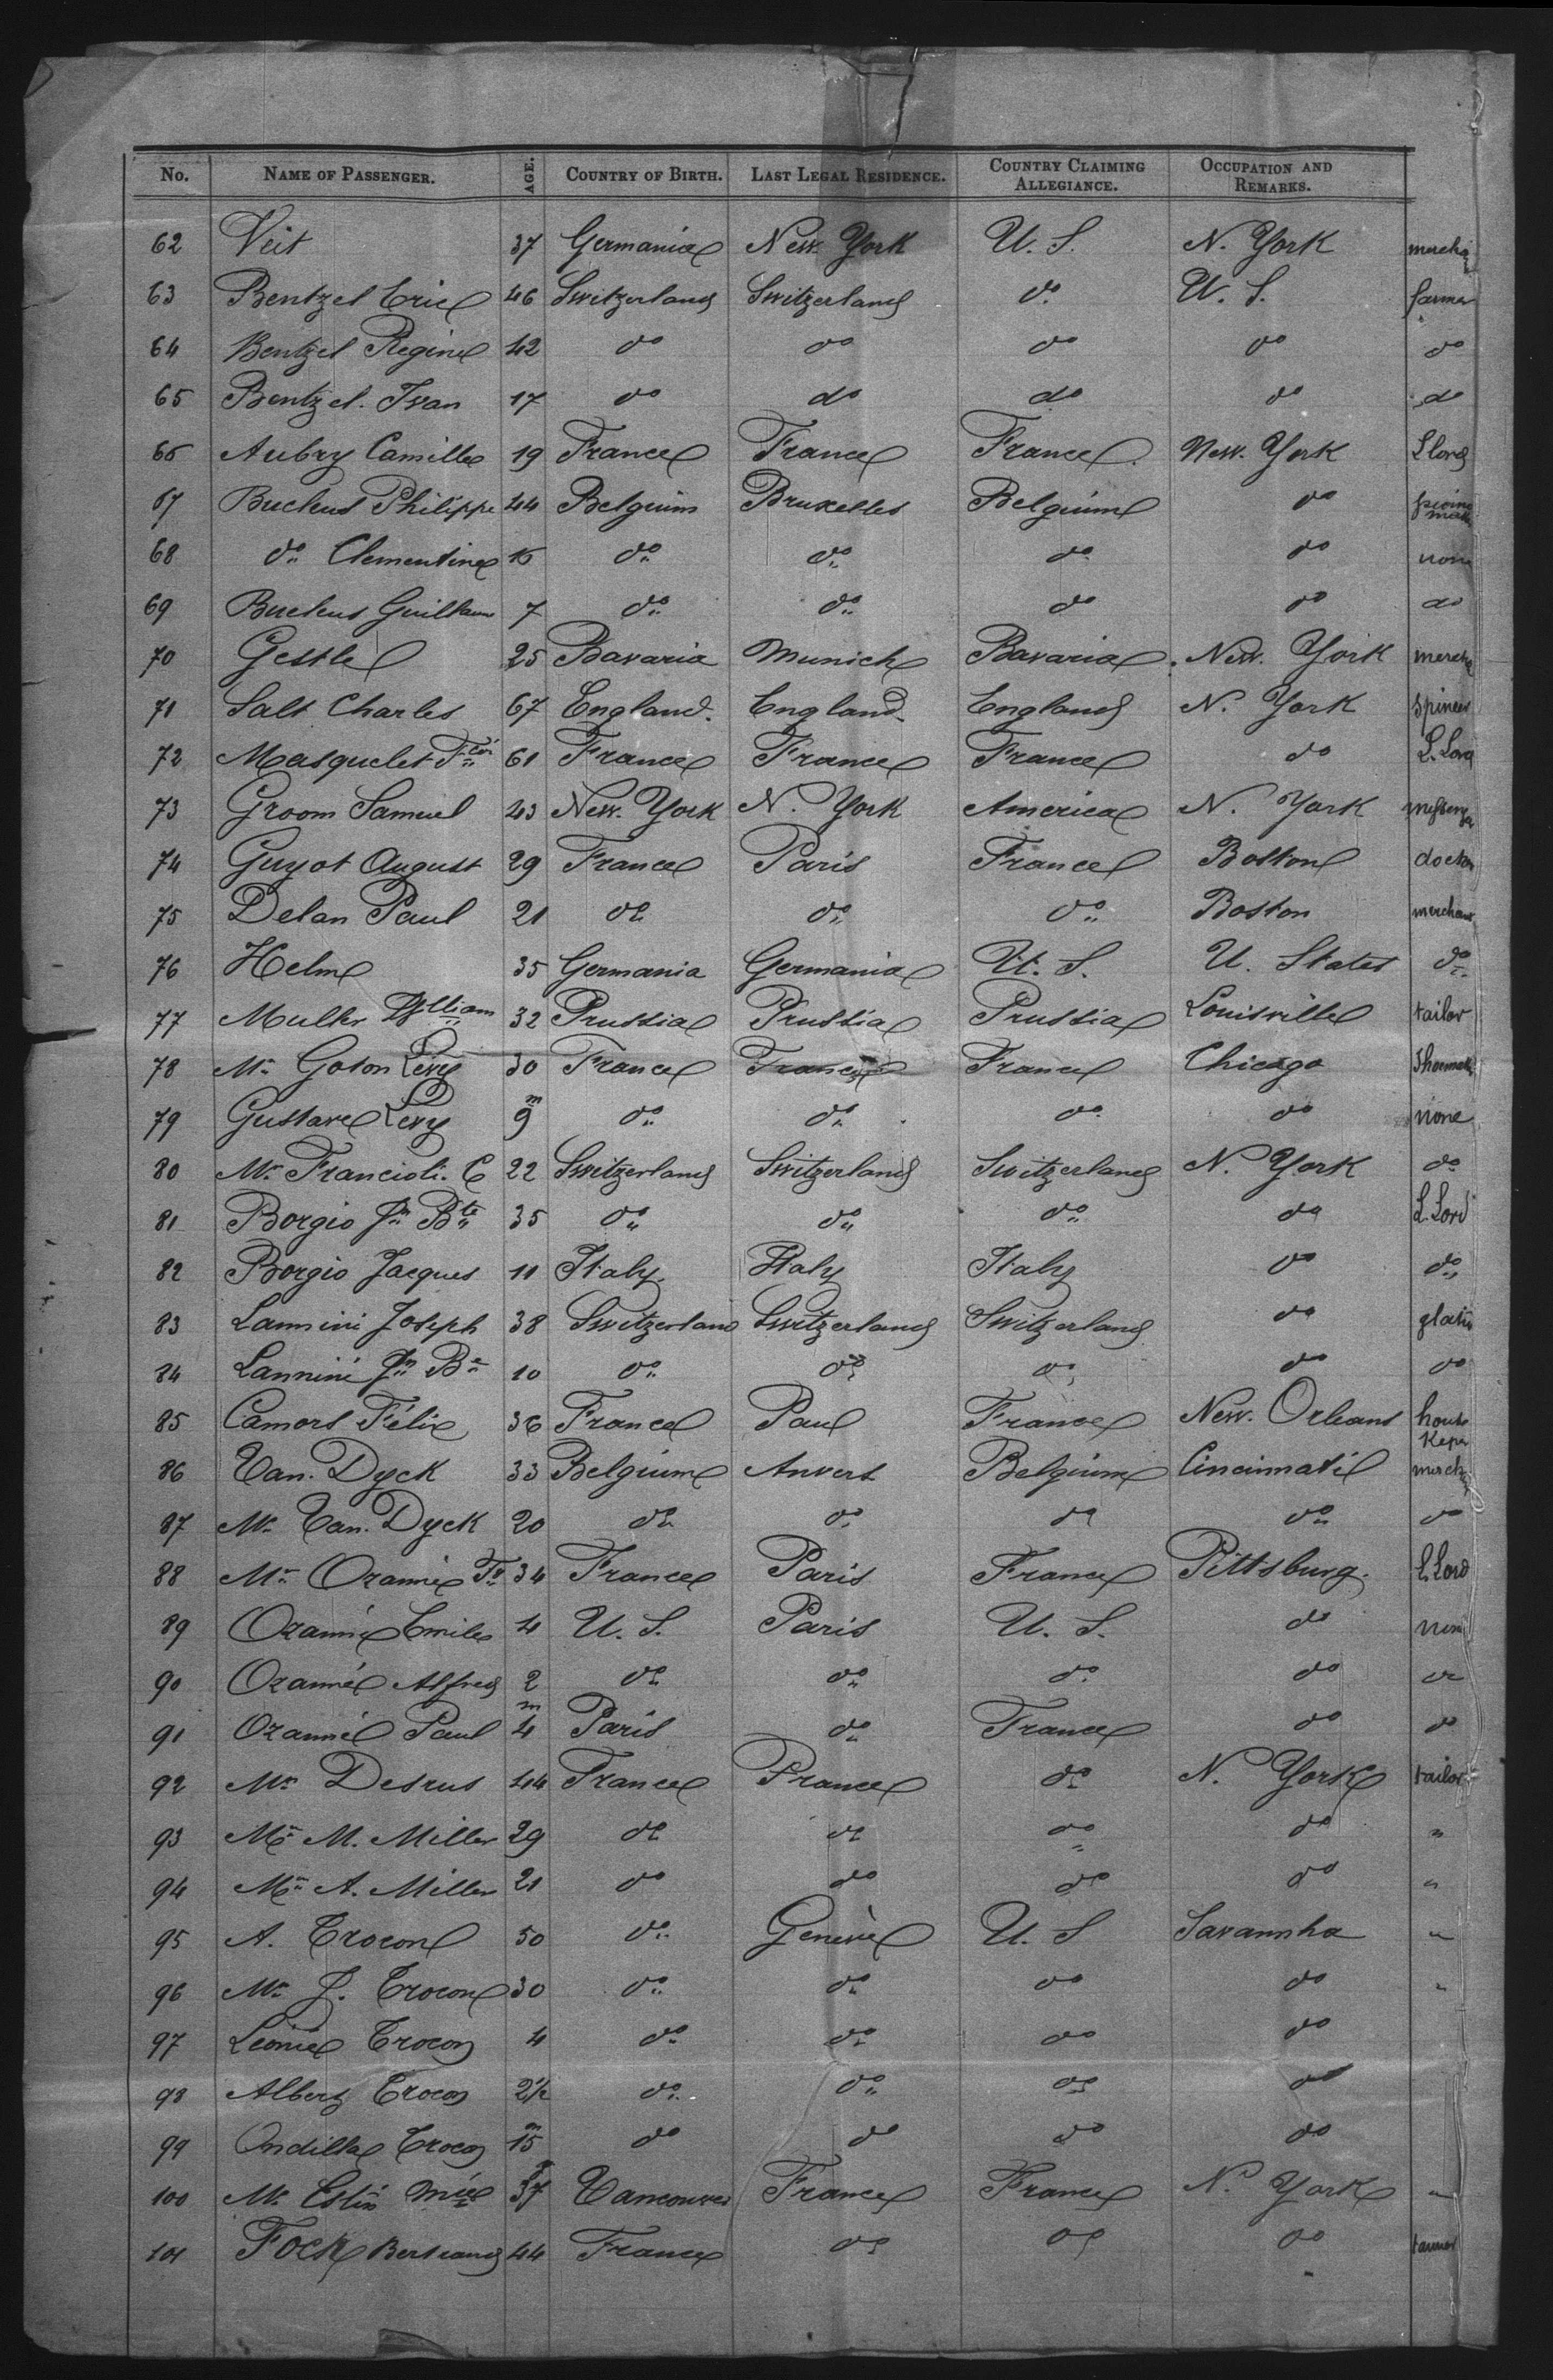 No. NAME OF PASSENGER. AGE. COUNTRY OF BIRTH. LAST LEGAL RESIDENCE. COUNTRY CLAIMING ALLEGIANCE. OCCUPATION AND REMARKS.
62 Veit 37 Germania New York U. S. N. York mercha
63 Bentzel Eric 46 Switzerland Switzerland do U. S. farmer
64 Bentzel Regine 42 do do do do do
65 Bentzel. Ivan 17 do do do do do
66 Aubry Camille 19 France France France. New. York Llord
67 Buckus Philippe 44 Belgium Bruxelles Belgium do
68 do Clementine do do do do none
69 Buckus Guillaum 7 do do do do do
70 Gestle 25 Bavaria Munich Bavaria New. York mercha
71 Salt Charles 67 England. England. England N. York
72 Masquelet 61 France France France do L. Lord
73 Groom Samuel 43 New. York N. York America N. York
74 Guyot August 29 France Paris France Boston doctor
75 Delan Paul 21 do do do Boston merchant
76 Helm 35 Germania Germania U. S. U. States do
77 Muller William 32 Prussia Prussia Prussia Louisville tailor
78 Mr Goton Levy 30 France France France Chicago
79 Gustave Levy 9 m do do do do none
80 Mr Francioli. C 22 Switzerland Switzerland Switzerland N. York do
81 Borgio Jn Bte 35 do do do do L. Lord
82 Borgio Jacques 11 Italy. Italy Italy do do
83 Lannini Joseph 38 Switzerland Switzerland Switzerland do
84 Lannini Jn Be 10 do do do do do
85 Camors Félix 36 France Paul France New. Orleans house keper
86 Van. Dyck 33 Belgium Anvers Belgium Cincinnati merch
87 Mr Van. Dyck 20 do do do do do
88 Mr Ozanné Fr 34 France Paris France Pittsburg. L. Lord
89 Ozanné Emile 4 U. S. Paris U. S. do none
90 Ozanné Alfred 2 do do do do do
91 Ozanné Paul 4 m Paris do France do do
92 Mr Desrus 44 France France do N. York tailor
93 Mr M. Miller 29 do do do do "
94 Mr A. Miller 21 do do do do "
95 A. Trocon 50 do Genève U. S Savannha "
96 Mr J. Trocon 30 do do do do "
97 Léonie Trocon 4 do do do do
98 Albert Trocon 2 1/2 do do do do
99 Trocon 15 m do do do do
100 Mr Estin 37 Vancouver France France N. York "
101 Fock Bertrand 44 France do do do tanner